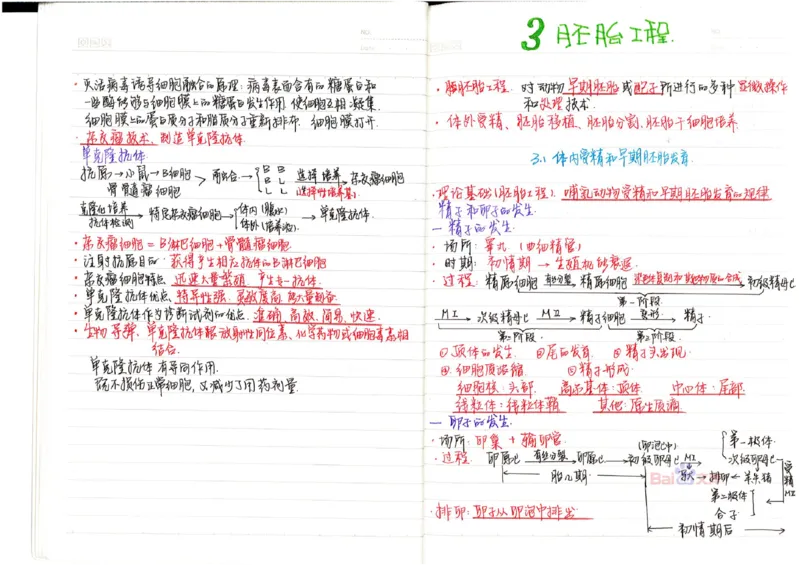 · 灭活病毒诱导细胞融合的原理：病毒表面含有的糖蛋白和
一些酶能够与细胞膜上的糖蛋白发生作用，使细胞互相凝集，
细胞膜上的蛋白质分子和脂质分子重新排布，细胞膜打开.
· 杂交瘤技术，制造单克隆抗体
单克隆抗体
抗原→小鼠→B细胞
骨髓瘤细胞
两两融合→
B B
B L
L L
选择培养
选择性培养基
杂交瘤细胞
克隆化培养
抗体检测
特定杂交瘤细胞
体内(腹水)
体外(培养液)
→单克隆抗体.
· 杂交瘤细胞 = B淋巴细胞+骨髓瘤细胞
· 注射抗原目的：获得产生相应抗体的B淋巴细胞
· 杂交瘤细胞特点：迅速大量繁殖，产生专一抗体.
· 单克隆抗体优点：特异性强、灵敏度高、能大量制备
· 单克隆抗体作为诊断试剂的优点：准确、高效、简易、快速.
· 生物导弹：单克隆抗体跟放射性同位素、化学药物或细胞毒素相
结合.
单克隆抗体有导向作用.
既不损伤正常细胞，又减少了用药剂量.
3 胚胎工程.
· 胚胎工程：对动物早期胚胎或配子所进行的多种显微操作
和处理技术.
· 体外受精、胚胎移植、胚胎分割、胚胎干细胞培养.
3.1 体内受精和早期胚胎发育.
· 理论基础(胚胎工程)：哺乳动物受精和早期胚胎发育的规律
精子和卵子的发生.
一 精子的发生.
· 场所：睾丸 (曲细精管)
· 时期：初情期→生殖机能衰退.
· 过程：精原细胞 有丝分裂 精原细胞 初级精母C
第一阶段
MI 次级精母C MII 精子细胞 变形 精子
第2阶段
① 顶体的发生 ② 尾的发育 ③
④ 细胞质浓缩 ⑤ 精子形成
细胞核：头部 高尔基体：顶体 中心体：尾部
线粒体：线粒体鞘 其他：原生质滴
一 卵子的发生.
· 场所：卵巢 + 输卵管.
· 过程：卵原C 有丝分裂 卵原C → 初级卵母C MI
第一极体
次级卵母C
胎儿期
排卵
第二极体
合子
受精
MII
初情期后
· 排卵：卵子从卵泡中排出